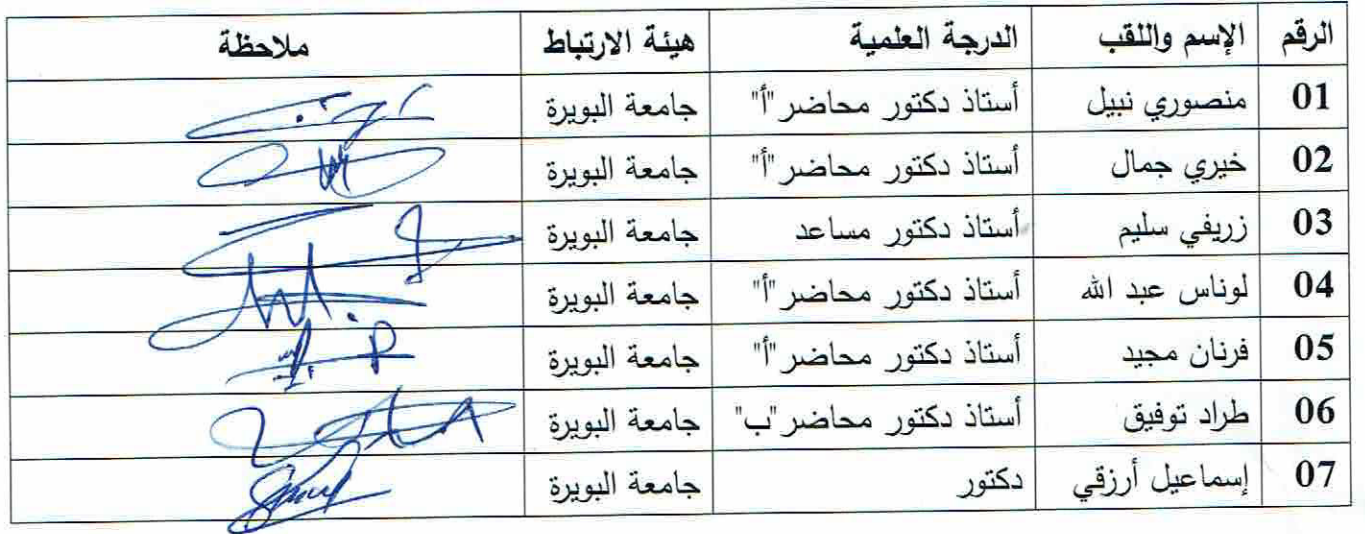 الرقم الإسم واللقب الدرجة العلمية هيئة الارتباط ملاحظة
01 منصوري نبيل أستاذ دكتور محاضر "أ" جامعة البويرة
02 خيري جمال أستاذ دكتور محاضر "أ" جامعة البويرة
03 زريفي سليم أستاذ دكتور مساعد جامعة البويرة
04 لوناس عبد الله أستاذ دكتور محاضر "أ" جامعة البويرة
05 فرنان مجيد أستاذ دكتور محاضر "أ" جامعة البويرة
06 طراد توفيق أستاذ دكتور محاضر "ب" جامعة البويرة
07 إسماعيل أرزقي دكتور جامعة البويرة